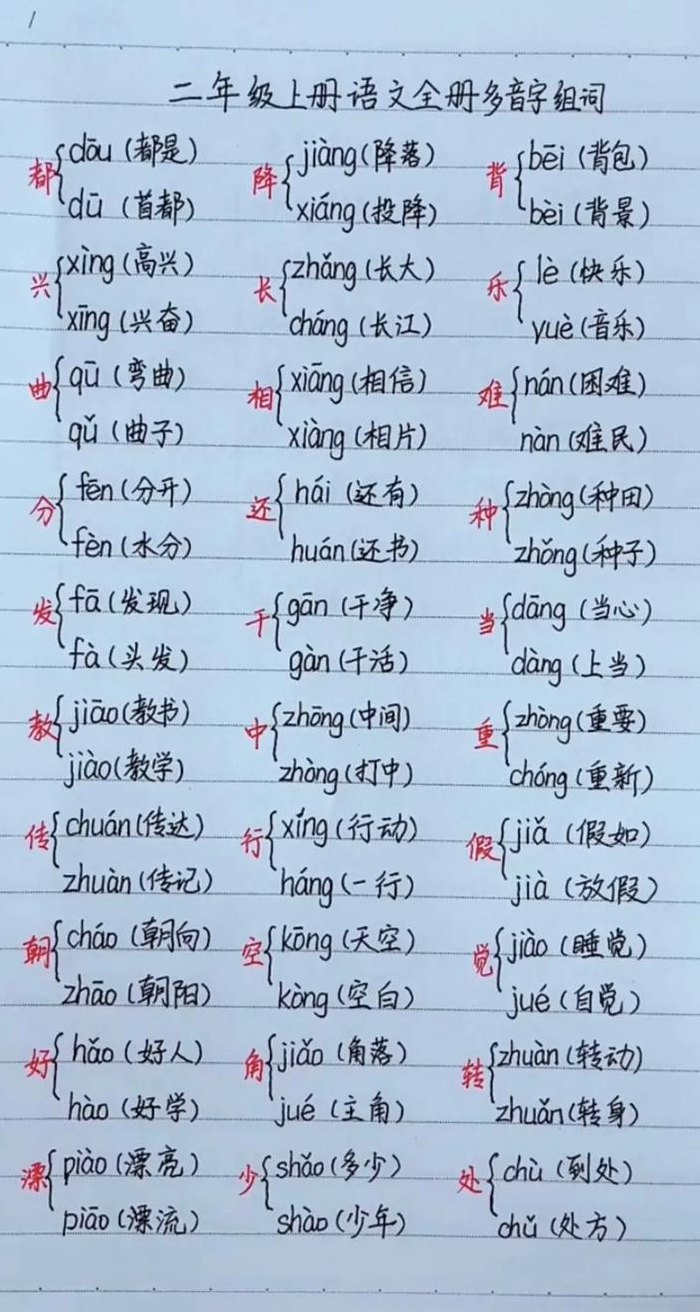 二年级上册语文全册多音字组词
都 dōu (都是) 降 jiàng (降落) 背 bēi (背包)
dū (首都) xiáng (投降) bèi (背景)
兴 xìng (高兴) 长 zhǎng (长大) 乐 lè (快乐)
xīng (兴奋) cháng (长江) yuè (音乐)
曲 qū (弯曲) 相 xiāng (相信) 难 nán (困难)
qǔ (曲子) xiàng (相片) nàn (难民)
分 fēn (分开) 还 hái (还有) 种 zhòng (种田)
fèn (水分) huán (还书) zhǒng (种子)
发 fā (发现) 干 gān (干净) 当 dāng (当心)
fà (头发) gàn (干活) dàng (上当)
教 jiāo (教书) 中 zhōng (中间) 重 zhòng (重要)
jiào (教学) zhòng (打中) chóng (重新)
传 chuán (传达) 行 xíng (行动) 假 jiǎ (假如)
zhuàn (传记) háng (一行) jià (放假)
朝 cháo (朝向) 空 kōng (天空) 觉 jiào (睡觉)
zhāo (朝阳) kòng (空白) jué (自觉)
好 hǎo (好人) 角 jiǎo (角落) 转 zhuàn (转动)
hào (好学) jué (主角) zhuǎn (转身)
漂 piào (漂亮) 少 shǎo (多少) 处 chù (到处)
piāo (漂流) shào (少年) chǔ (处方)